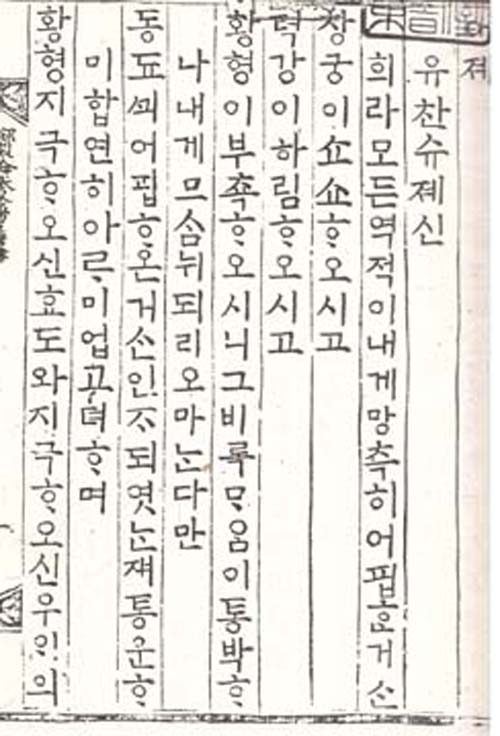 져
유찬슈졔신
희라모든역적이내게망측히어핍ᄒᆞᆫ거ᄉᆞᆫ
창궁이쇼쇼ᄒᆞ오시고
텩강이하림ᄒᆞ오시고
황형이부쵹ᄒᆞ오시니그비록ᄆᆞᄋᆞᆷ이통박ᄒᆞ
나내게므ᄉᆞᆷ뉘되리오마ᄂᆞᆫ다만
동됴ᄭᅴ어핍ᄒᆞ온거ᄉᆞᆫ인ᄌᆞ되엿ᄂᆞᆫ쟤통운ᄒᆞ
미합연히아ᄅᆞ미업고뎌ᄒᆞ며
황형지극ᄒᆞ오신효도와지극ᄒᆞ오신우ᄋᆡ의